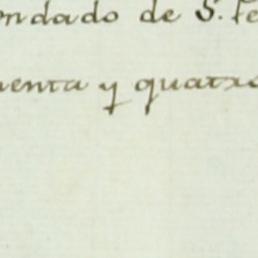 endado de S. Fe
uenta y quatro